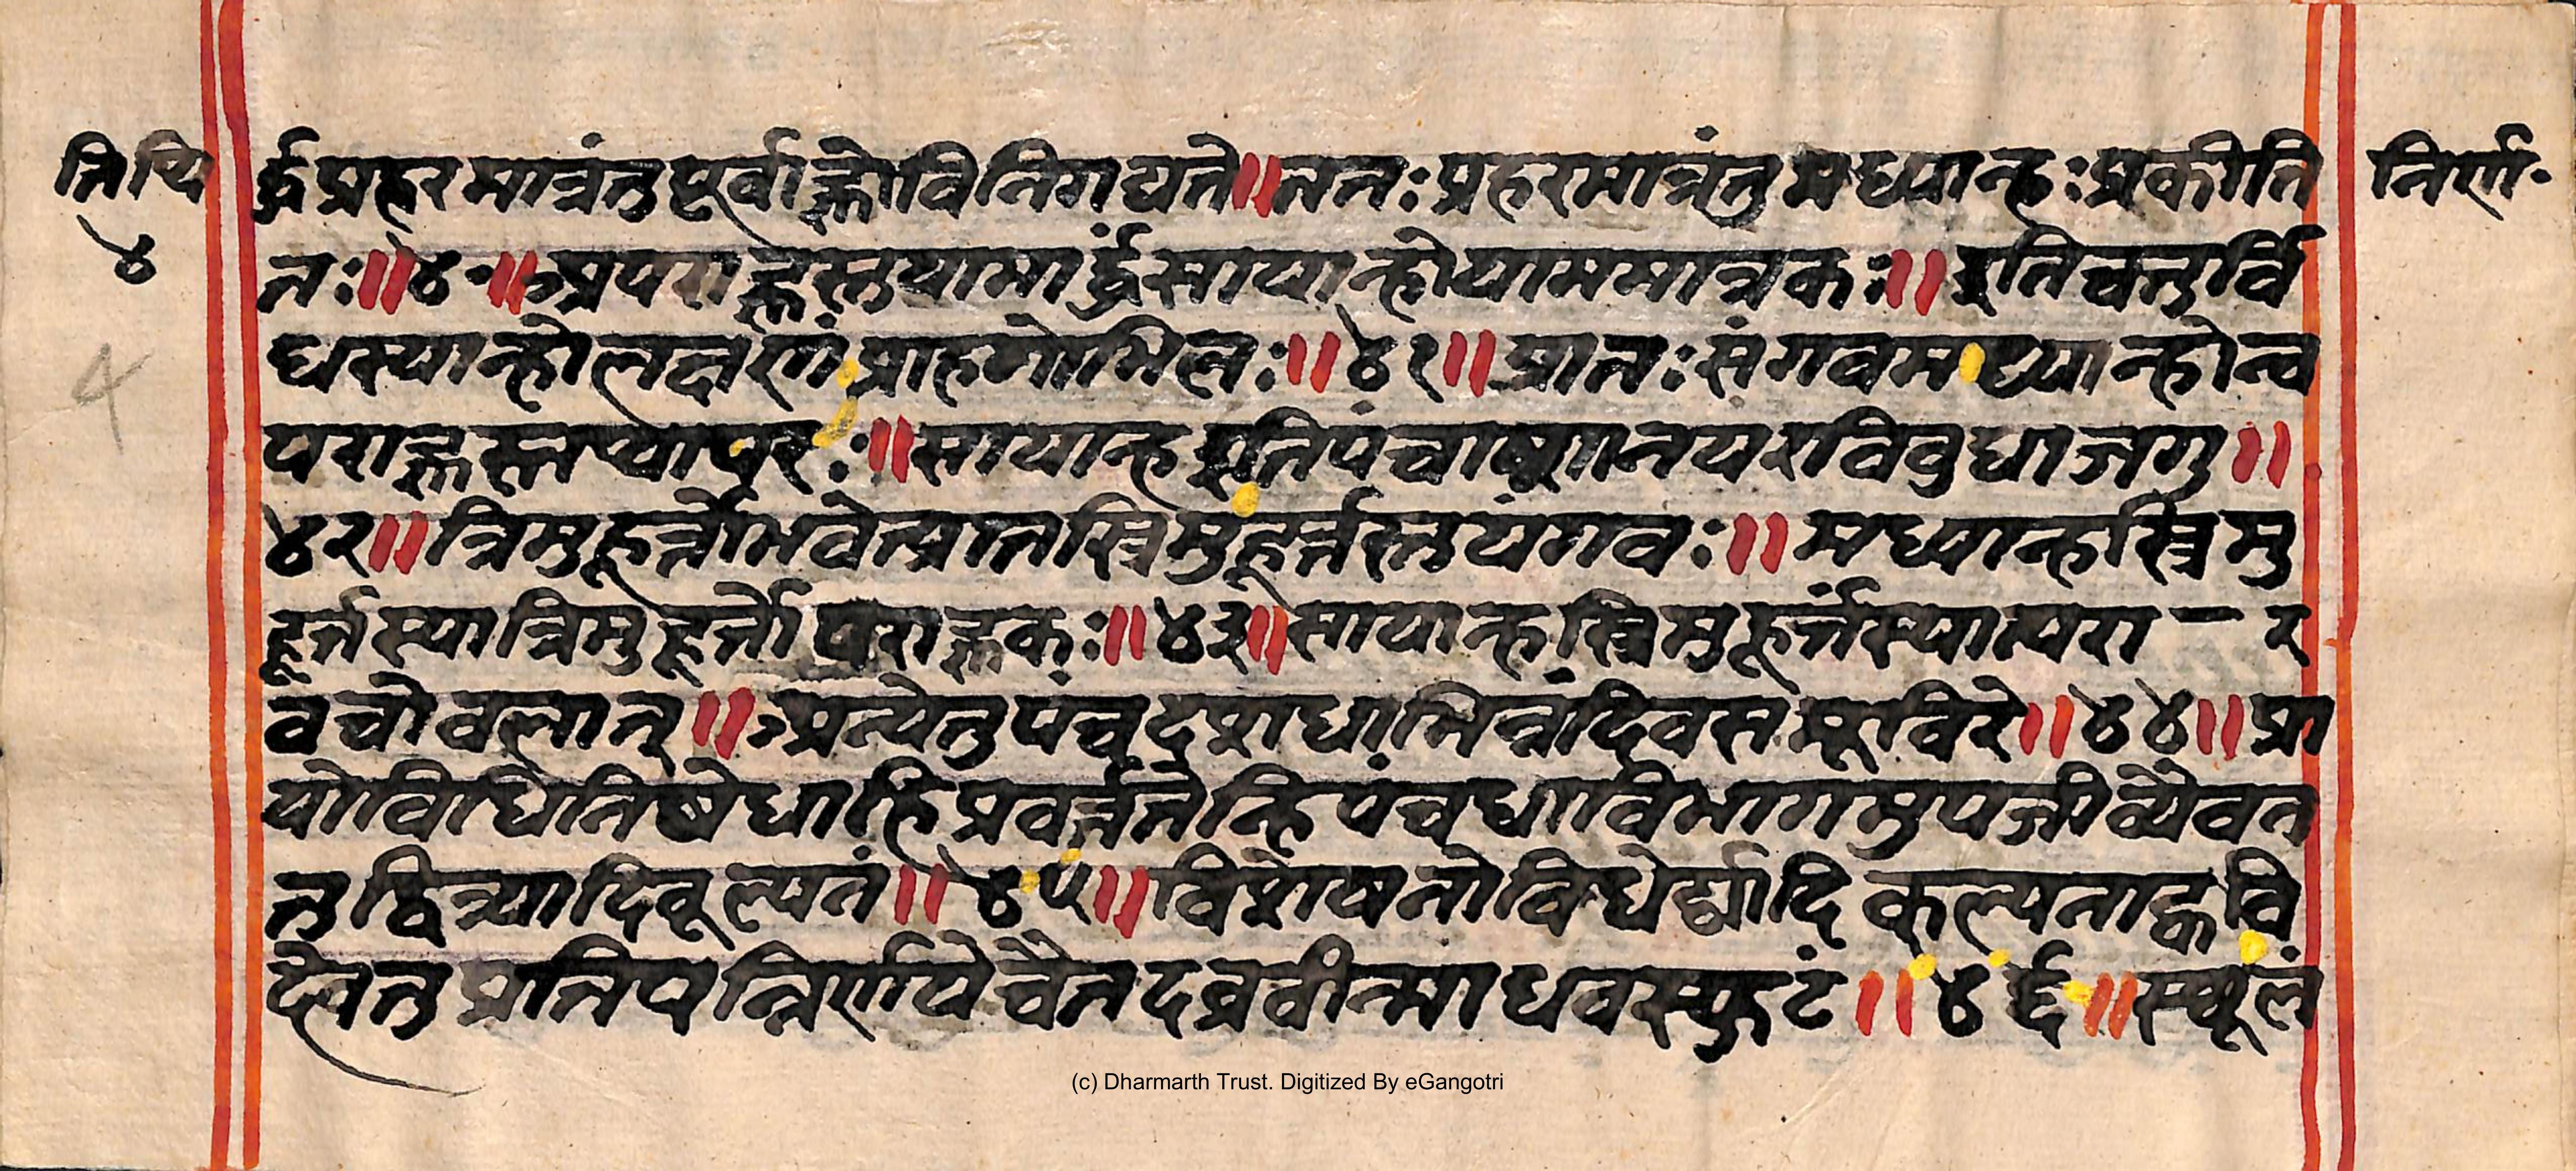 तिथि
४
4
र्द्धप्रहरमात्रंतुपूर्वाह्णोविनिगद्यते॥ततःप्रहरमात्रंतुमध्यान्हःप्रकीर्ति
तः॥४॰॥अपराह्णस्तुयामार्द्धंसायान्होयाममात्रकः॥इतिचतुर्वि
धस्यान्होलक्षणंप्राहगोभिलः॥४१॥प्रातःसंगवमध्यान्होत्व
पराह्णस्तथापरः॥सायान्हइतिपंचाष्णानपरविबुधाजगु॥
४२॥त्रिमुहूर्त्तोभवेत्प्रातस्त्रिमुहूर्त्तस्तुसंगवः॥मध्यान्हस्त्रिमु
हूर्त्तस्यात्रिमुहूर्त्तोपराह्णकः॥४३॥सायान्हस्त्रिमुहूर्त्तंस्यात्परा—र
वचोबलात्॥अन्येतुपंचदशधाभिन्नंदिवसमूचिरे॥४४॥प्रा
योविधिनिषेधाहिप्रवर्त्ततेन्हिपंचधाविभागमुपजीव्यैवत
तुद्वित्र्यादिकल्पनं॥४५॥विशेषतोविधेर्द्व्यादिकल्पनाक्कवि
देवतु प्रतिपन्निर्णयेचैतदब्रवीन्माधवस्फुटं॥४६॥स्थूलं
निर्ण॰
(c) Dharmarth Trust. Digitized By eGangotri